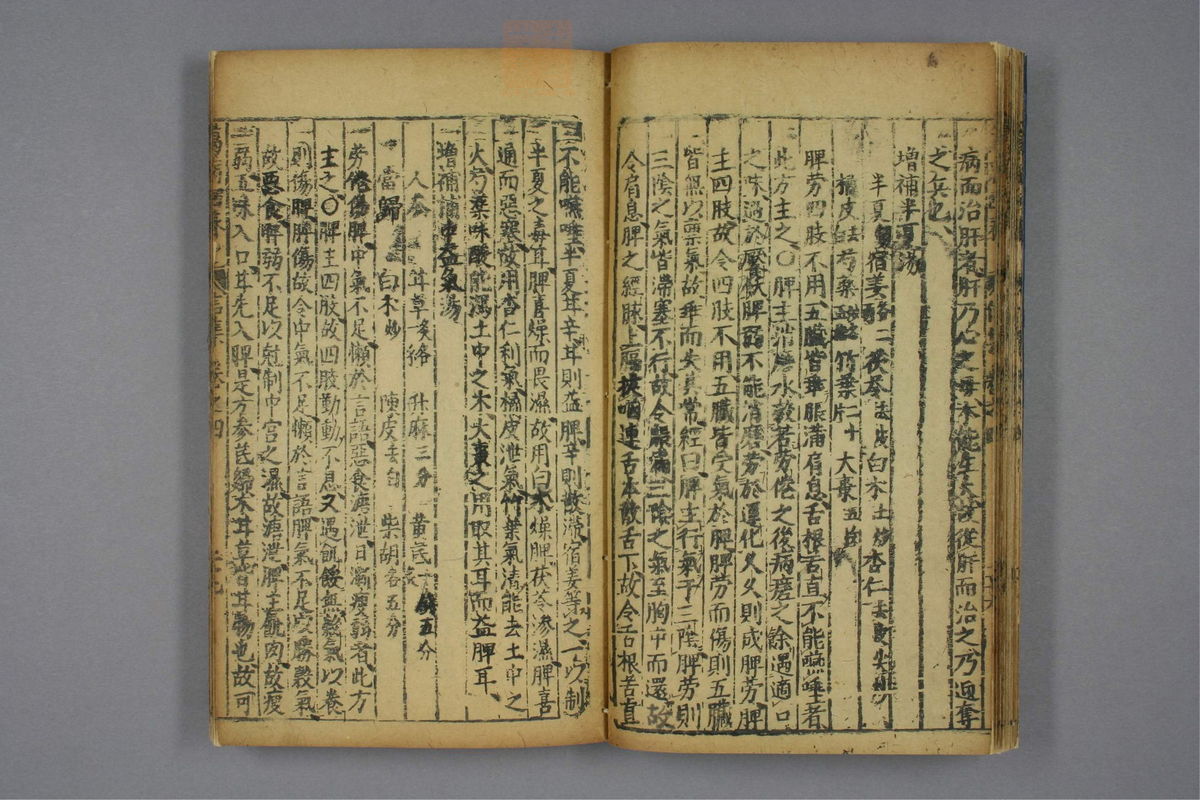 病而治肝者肝乃心之母木能生火故從肝而治之乃迎奪
之兵也
增補半夏湯
半夏 宿姜 茯苓去皮 白朮土炒 杏仁去皮尖
橘皮去白 芍藥 竹葉二十片 大棗五枚
脾勞四肢不用五臟皆乖脹滿肩息舌根苦直不能嚥唾者
此方主之〇脾主消磨水穀若勞倦之後病瘥之餘遇適口
之味過於饜飫脾弱不能消磨勞於運化久久則成脾勞脾
主四肢故令四肢不用五臟皆受氣於脾脾勞而傷則五臟
皆無以禀氣故乖而失其常經曰脾主行氣于三陰脾勞則
三陰之氣皆滯塞不行故令脹滿三陰之氣至胸中而還故
令肩息脾之經脉上膈挾咽連舌本散舌下故令舌根苦直
不能嚥唾半夏甘辛甘則益脾辛則散滯宿姜等之以制
半夏之毒耳脾喜燥而畏濕故用白朮燥脾茯苓滲濕脾喜
通而惡 故用杏仁利氣橘皮泄氣竹葉氣清能去土中之
火芍藥味酸能瀉土中之木大棗之用取其甘而益脾耳
增補補中益氣湯
人參 甘草炙 升麻三分 黃芪一錢五分
當歸 白朮炒 陳皮去白 柴胡各五分
勞倦傷脾中氣不足懶於言語惡食溏泄日漸瘦弱者此方
主之〇脾主四肢故四肢勤動不息又遇飢餒無穀氣以養
則傷脾脾傷故令中氣不足懶於言語脾氣不足以勝穀氣
故惡食脾弱不足以尅制中宮之濕故溏泄脾主肌肉故瘦
弱五味入口甘先入脾是方參芪歸朮甘草皆甘物也故可